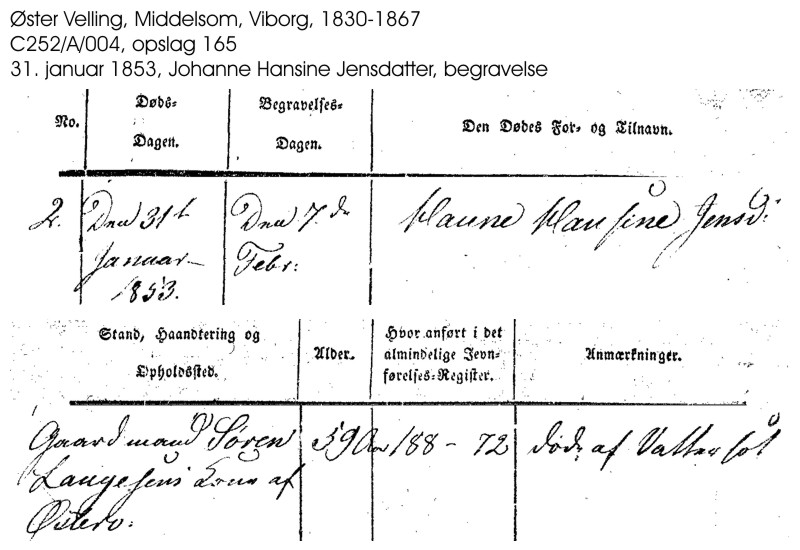 Øster Velling, Middelsom, Viborg, 1830-1867
C252/A/004, opslag 165
31. januar 1853, Johanne Hansine Jensdatter, begravelse
No.
Døds-
Dagen.
Begravelses-
Dagen.
Den Dødes For- og Tilnavn.
2.
Den 31te
Januar
1853.
Den 7de
Febr:
Hanne Hansine Jensd:
Stand, Haandtering og
Opholdssted.
Alder.
Hvor anført i det
almindelige Jevn-
førelses-Register.
Anmærkninger.
Gaardmand Søren
Laugesens Kone af
Østerv:
59 Aar
188 - 72
døde af Vattersot